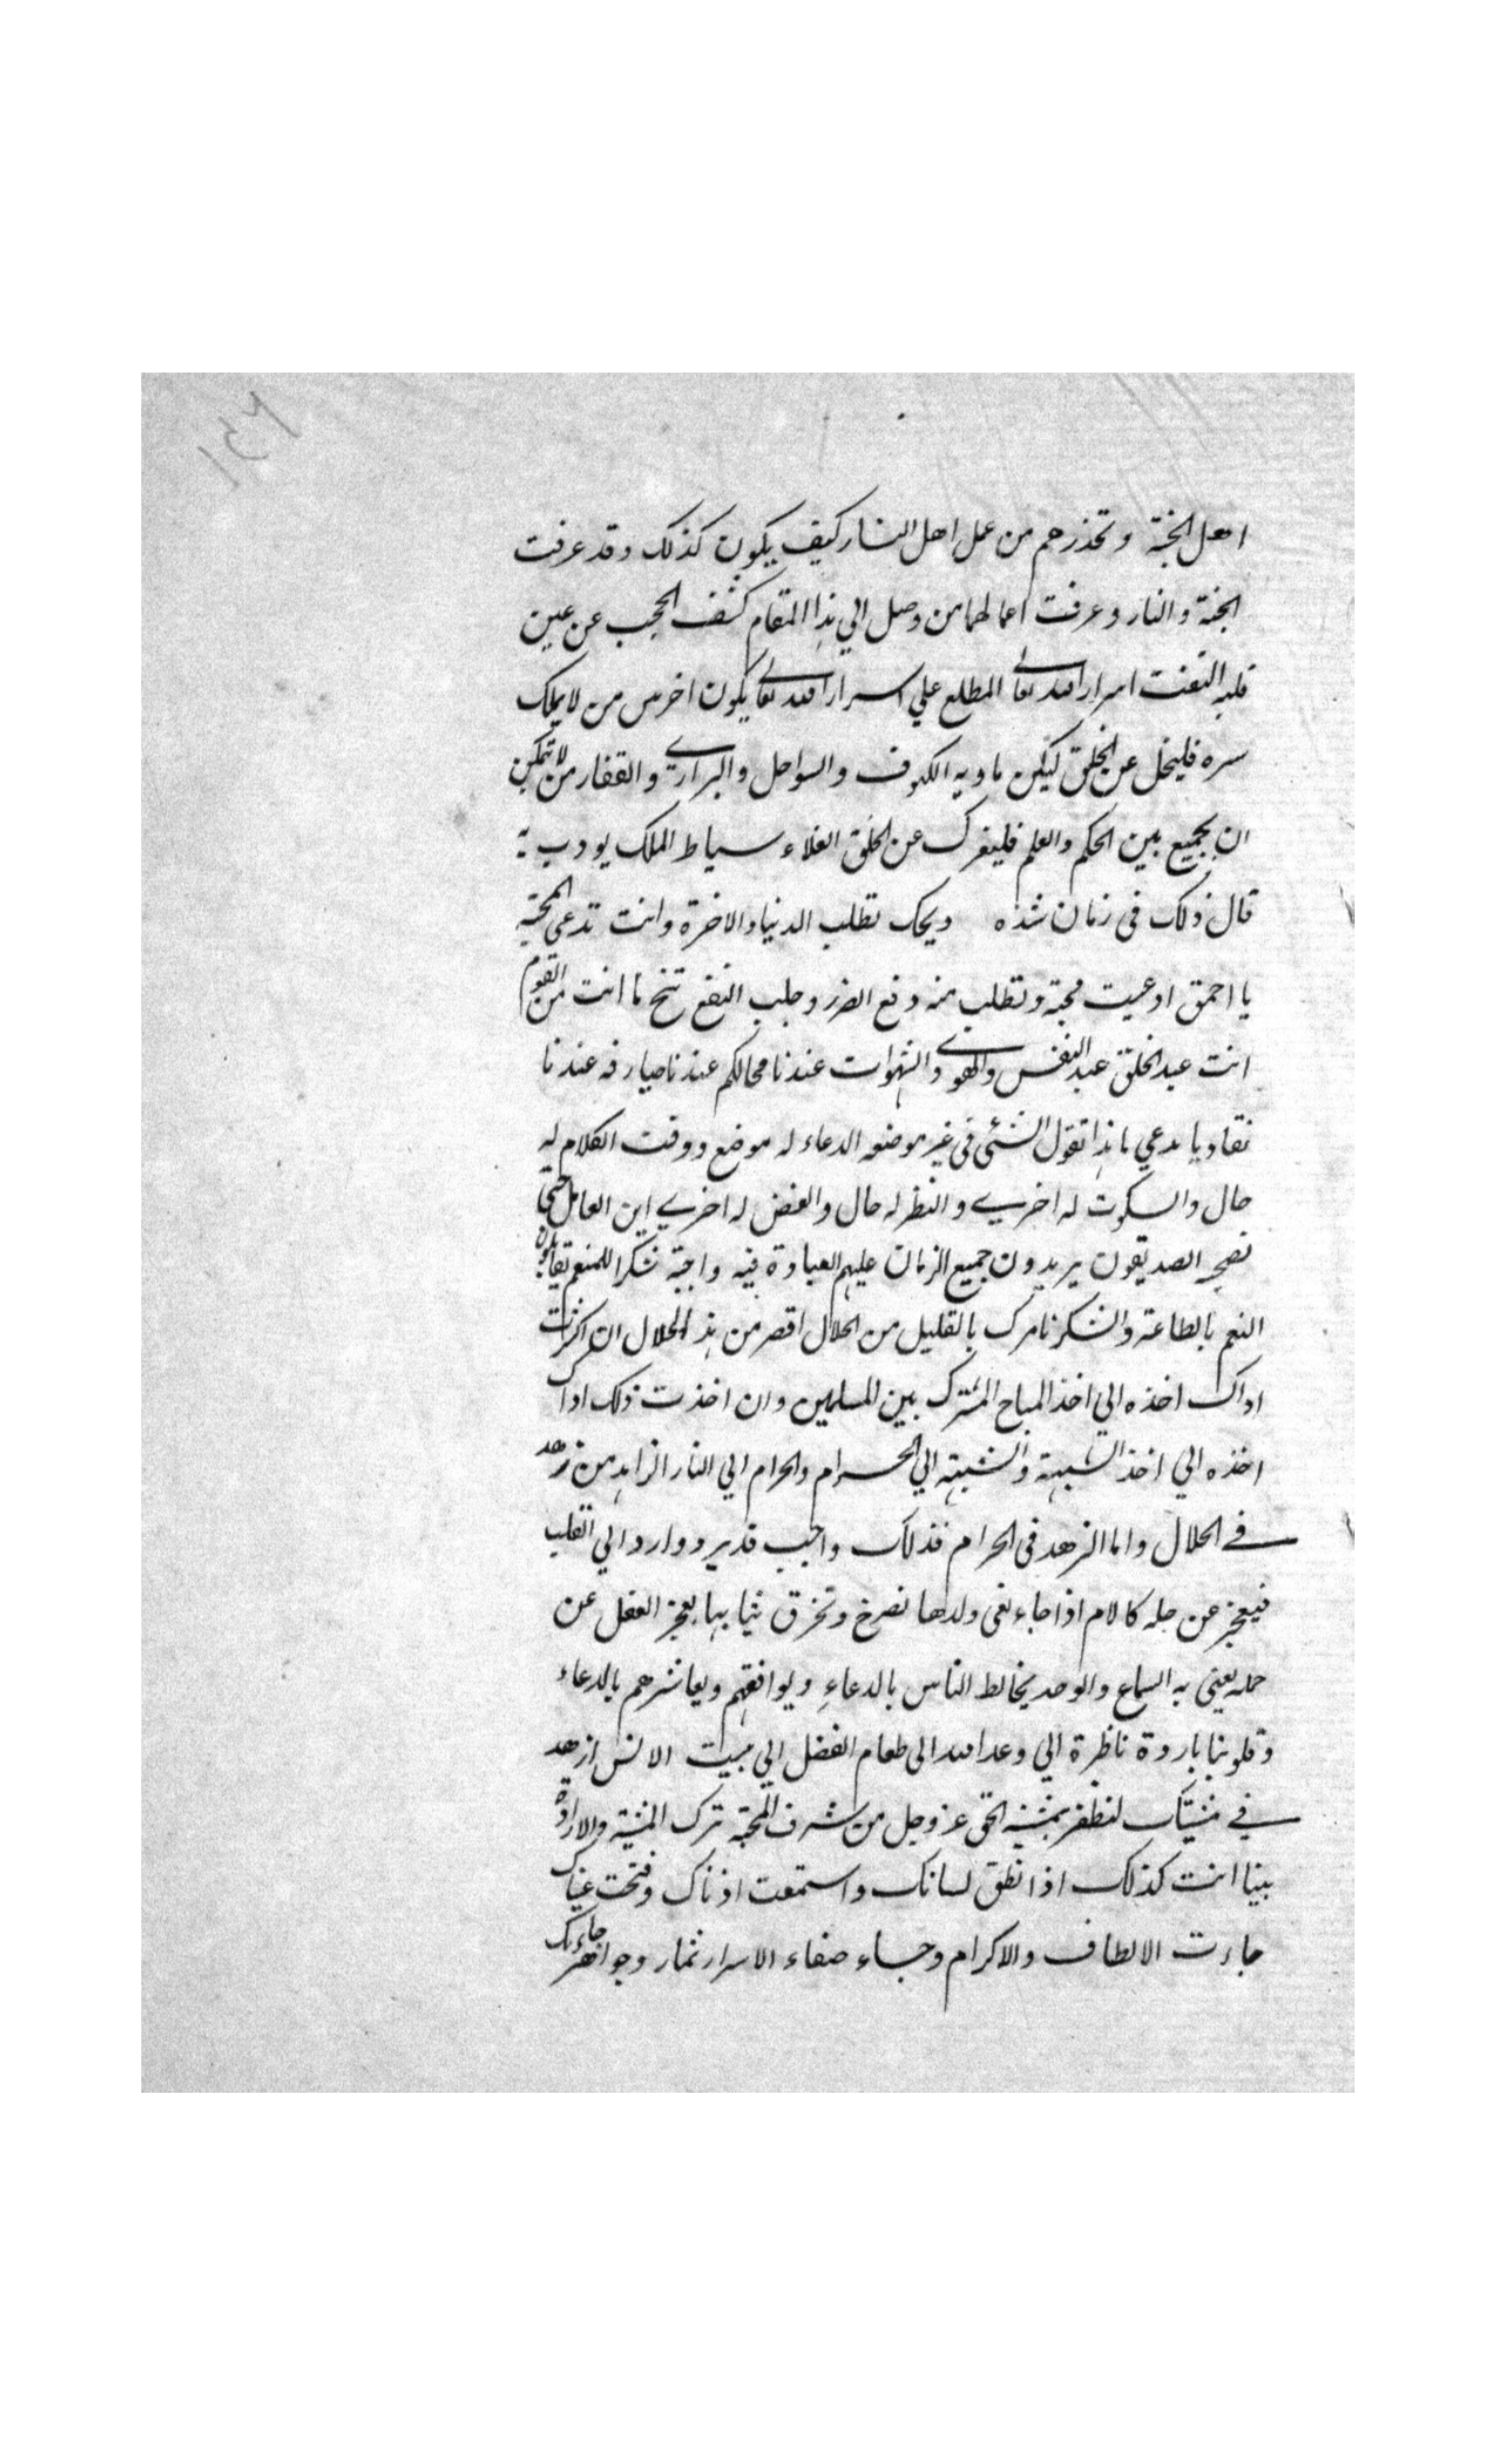 ١٤٦
اهل الجنة وتحذرهم من عمل اهل النار كيف يكون كذلك وقد عرفت
الجنة والنار وعرفت اعمالهما من وصل الي هذا المقام كشف الحجب عن عين
قلبه التفت اسرار الله تعالى المطلع علي اسرار الله تعالى يكون اخرس من لا يملك
سره فليخل عن الخلق ليكن ماويه الكهوف والسواحل والبراري والقفار من لا تمكن
ان يجمع بين الحكم والعلم فليفرك عن الخلق الغلاء سياط الملك يودب به
قال ذلك في زمان شده ويحك تطلب الدنيا والاخرة وانت تدعي المحبة
يا احمق ادعيت محبة وتطلب منه دفع الضرر وجلب النفع تنح ما انت من القوم
انت عبد الخلق عبد النفس والهوي والشهوات عندنا محالكم عندنا صيارفه عندنا
نقاد يا مدعي ما هذا تقول الشئ في غير موضعه الدعاء له موضع ووقت الكلام له
حال والسكوت له اخري والنظر له حال والغض له اخري اين العامل حتي
نصحه الصديقون يريدون جميع الزمان عليهم العبادة فيه واجبة شكرا للمنعم
النعم بالطاعة والشكر نامرك بالقليل من الحلال اقصر من هذا الحلال ان اكثرت
اداك اخذه الي اخذ المباح المشترك بين المسلمين وان اخذت ذلك اداك
اخذه الي اخذ الشبهة والشبهة الي الحرام والحرام الي النار الزاهد من زهد
في الحلال واما الزهد في الحرام فذلك واجب قد يرد وارد الي القلب
فيعجز عن حمله كالام اذا جاء نعى ولدها تصرخ وتخرق ثيابها يعجز العقل عن
حمله يعني به السماع والوجد يخالط الناس بالدعاء ويوافقهم ويعاشرهم بالدعاء
وقلوبنا باردة ناظرة الي وعد الله الى طعام الفضل الي بيت الانس ازهد
في مشيتك لتظفر بمشية الحق عز وجل من شرف المحبة ترك المشية والارادة
بينا انت كذلك اذا نطق لسانك واستمعت اذناك وفتحت عيناك
جاءت الالطاف والاكرام وجاء صفاء الاسرار ثمار وجواهر جاءك